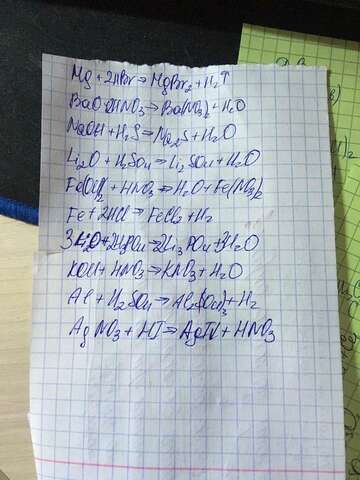 Mg + 2HBr → MgBr2 + H2↑
BaO + 2HNO3 → Ba(NO3)2 + H2O
NaOH + H2S → Na2S + H2O
Li2O + H2SO4 → Li2SO4 + H2O
Fe(OH)2 + HNO3 → H2O + Fe(NO3)2
Fe + 2HCl → FeCl2 + H2
3Li2O + 2H3PO4 → 2Li3PO4 + 3H2O
KOH + HNO3 → KNO3 + H2O
Al + H2SO4 → Al2(SO4)3 + H2
AgNO3 + HI → AgI↓ + HNO3